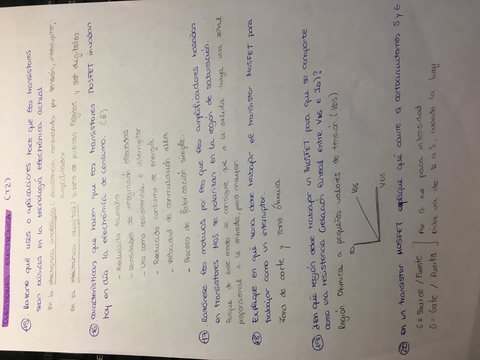 (T2)
15 Razone qué usos o aplicaciones hace que los transistores
sean básicos en la tecnología electrónica actual
en la electrónica analógica: resistencia controlada por tensión, interruptor,
amplificador
en la electrónica digital: serie de puertas lógicas y ser digitales
16 características que hacen que los transistores MOSFET invadan
hoy en día la electrónica de consumo. (6)
- Reducido tamaño
- Densidades de integración elevadas
- Uso como resistencia o interruptor
- Reducido consumo de energía
- Velocidad de conmutación alta
- Proceso de fabricación simple.
17 Razónese los motivos por los que los amplificadores basados
en transistores MOS se polarizan en la región de saturación.
Porque de este modo se consigue que a la salida haya una señal
proporcional a la entrada pero mayor.
18 Explique en qué zonas debe trabajar el transistor MOSFET para
trabajar como un interruptor.
Zona de corte y zona óhmica
19 ¿En qué región debe trabajar un MOSFET para que se comporte
como una resistencia (relación lineal entre VDS e ID)?
Región Óhmica a pequeños valores de tensión (VDS)
ID
VGS
VDS
20 en un transistor MOSFET explique qué ocurre si cortocircuitamos S y G.
S = Source / Fuente
G = Gate / Puerta
Por G no pasa intensidad